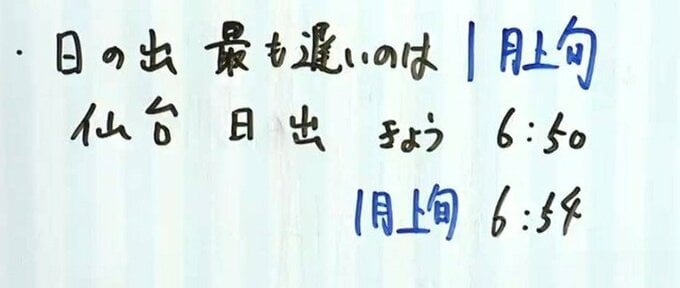 ・日の出 最も遅いのは 1月上旬
仙台 日出 きょう 6:50
1月上旬 6:54